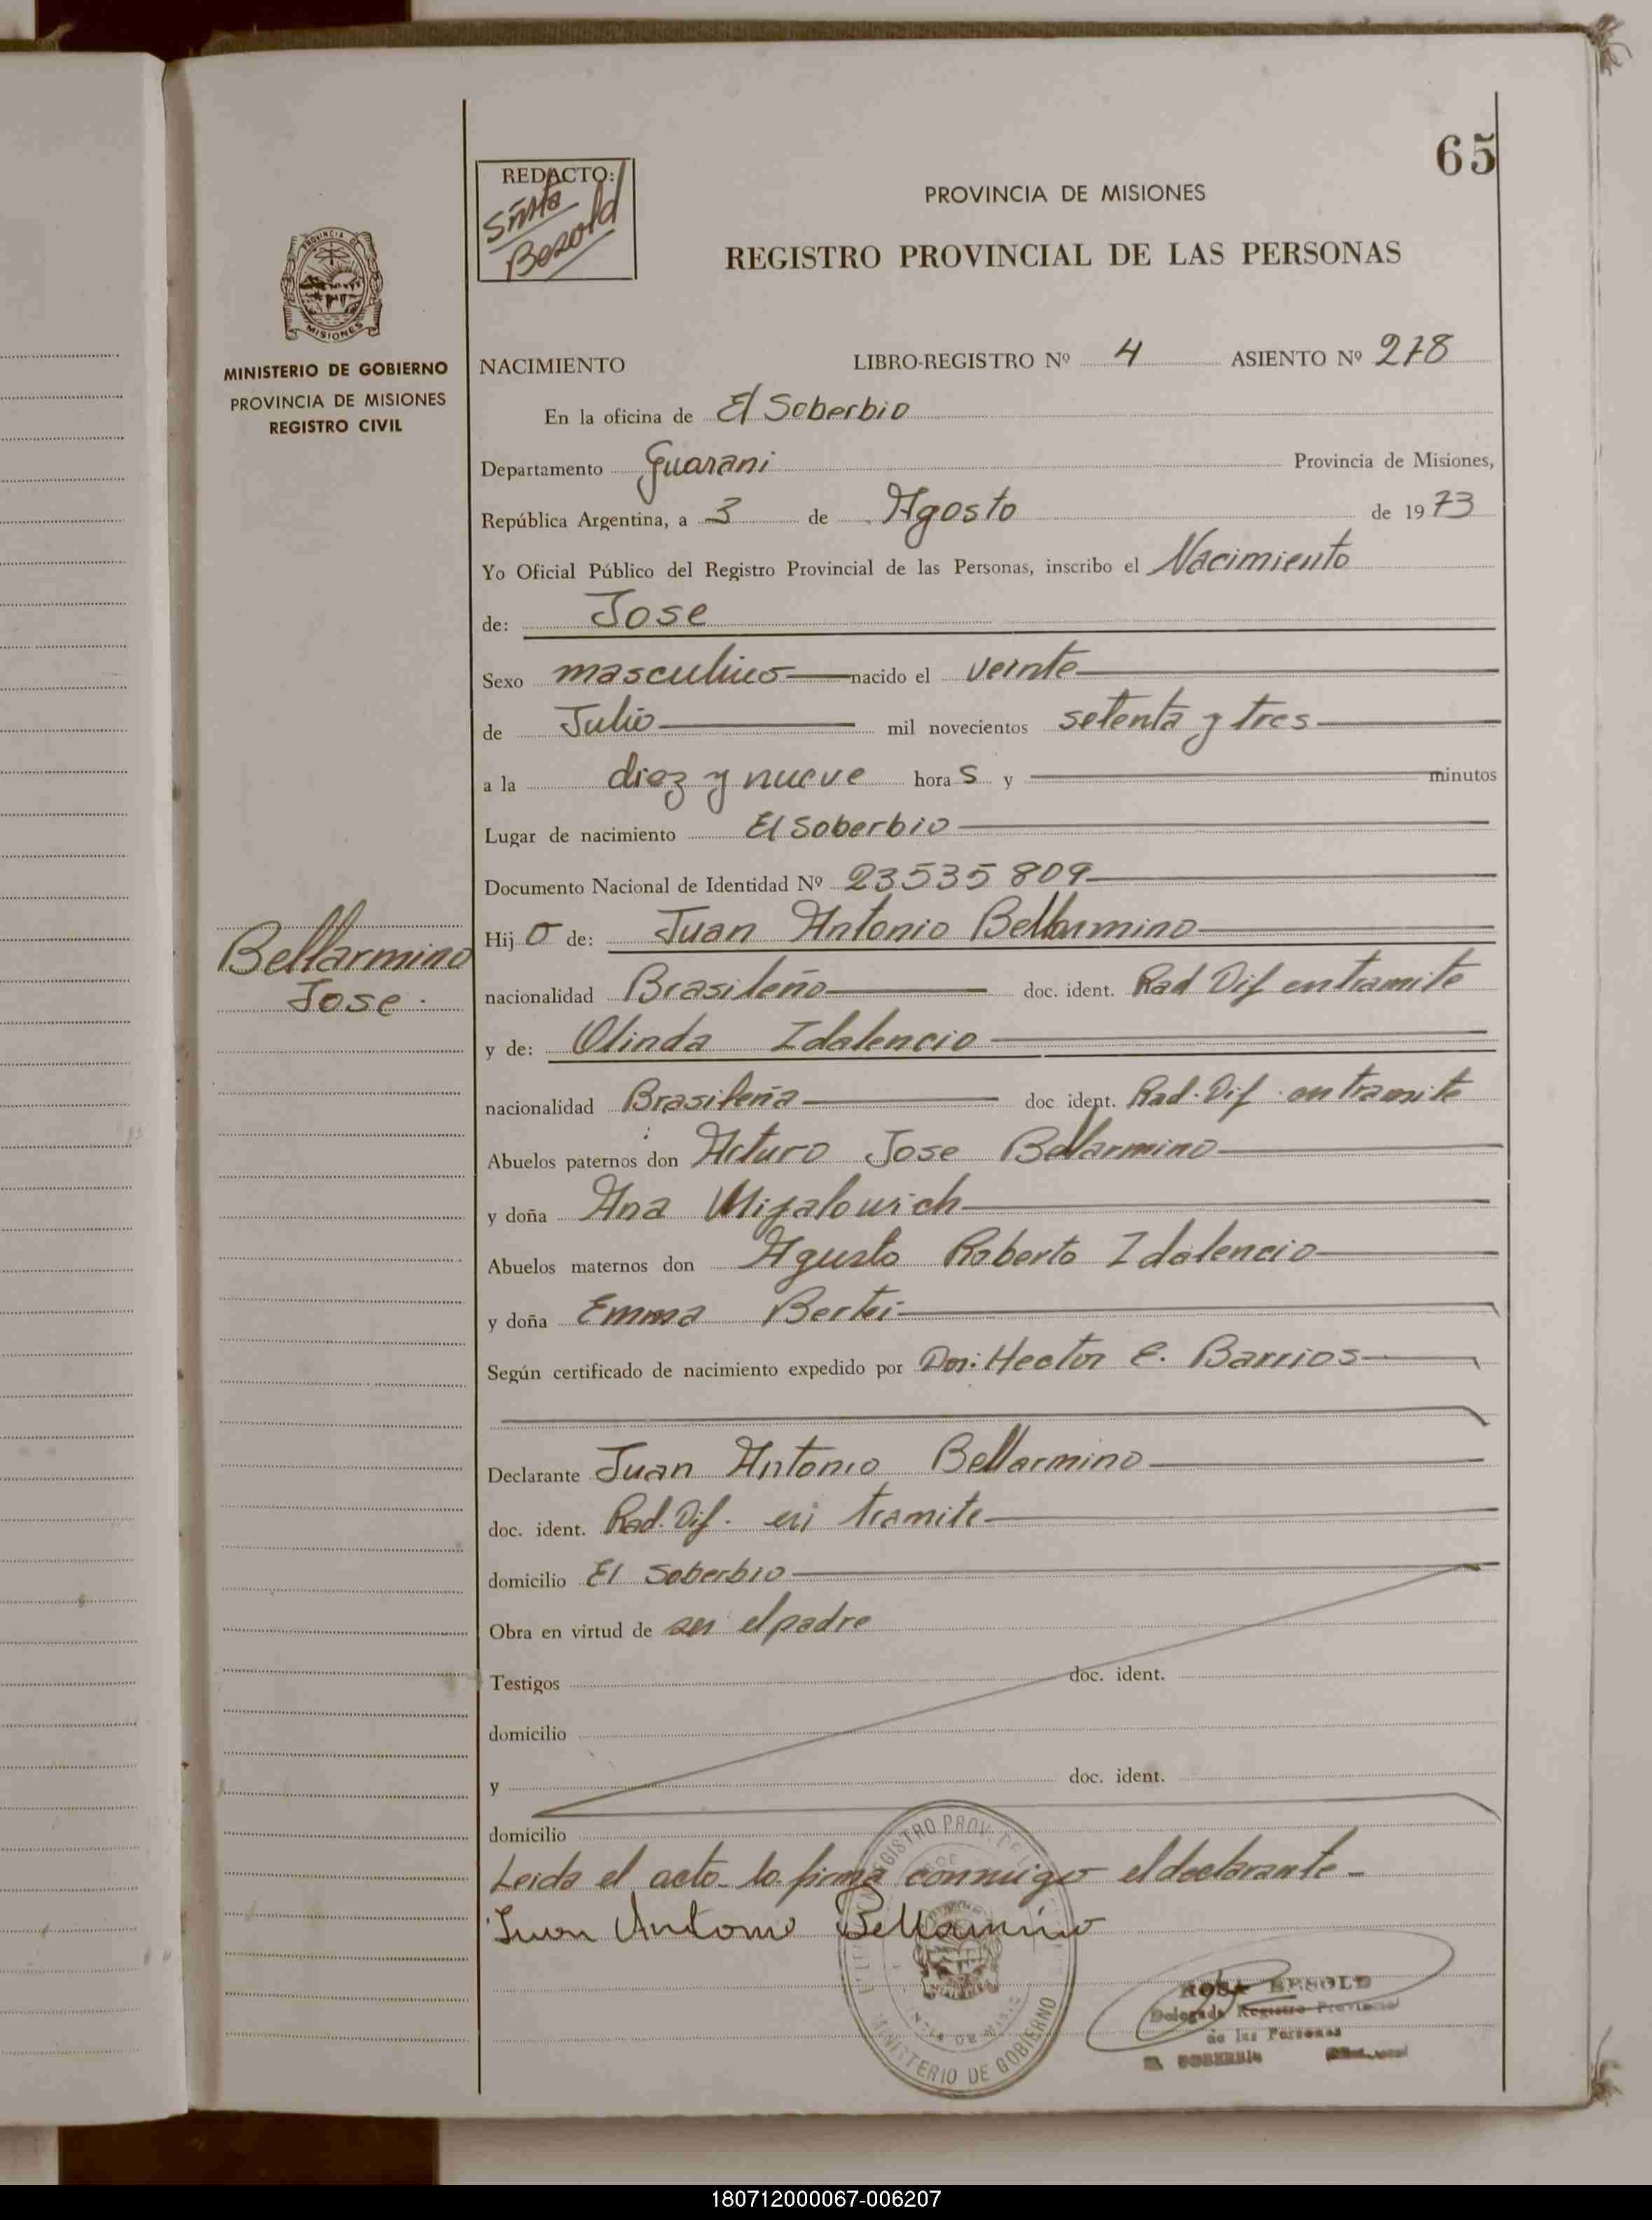 65
REDACTO:
Sñrta
Besold
PROVINCIA DE MISIONES
REGISTRO PROVINCIAL DE LAS PERSONAS
PROVINCIA DE
MISIONES
MINISTERIO DE GOBIERNO
PROVINCIA DE MISIONES
REGISTRO CIVIL
NACIMIENTO LIBRO-REGISTRO Nº 4 ASIENTO Nº 278
En la oficina de El Soberbio
Departamento Guarani Provincia de Misiones,
República Argentina, a 3 de Agosto de 1973
Yo Oficial Público del Registro Provincial de las Personas, inscribo el Nacimiento
de: Jose
Sexo masculino nacido el veinte
de Julio mil novecientos setenta y tres
a la diez y nueve horas y minutos
Lugar de nacimiento El Soberbio
Documento Nacional de Identidad Nº 23535809
Bellarmino
Jose.
Hijo de: Juan Antonio Bellarmino
nacionalidad Brasileño doc. ident. Rad Dif en tramite
y de: Olinda Idalencio
nacionalidad Brasileña doc ident. Rad. Dif en tramite
Abuelos paternos don Arturo Jose Bellarmino
y doña Ana
Abuelos maternos don Agusto Roberto Idalencio
y doña Emma
Según certificado de nacimiento expedido por Hector E. Barrios
Declarante Juan Antonio Bellarmino
doc. ident. Rad. Dif. en tramite
domicilio El Soberbio
Obra en virtud de ser el padre
Testigos doc. ident.
domicilio
y doc. ident.
domicilio
Leida el acto lo firma conmigo el declarante
Juan Antonio Bellarmino
REGISTRO PROV. DE
MINISTERIO DE GOBIERNO
ROSA BESOLD
Delegada Registro Provincial
de las Personas
EL SOBERBIO
180712000067-006207